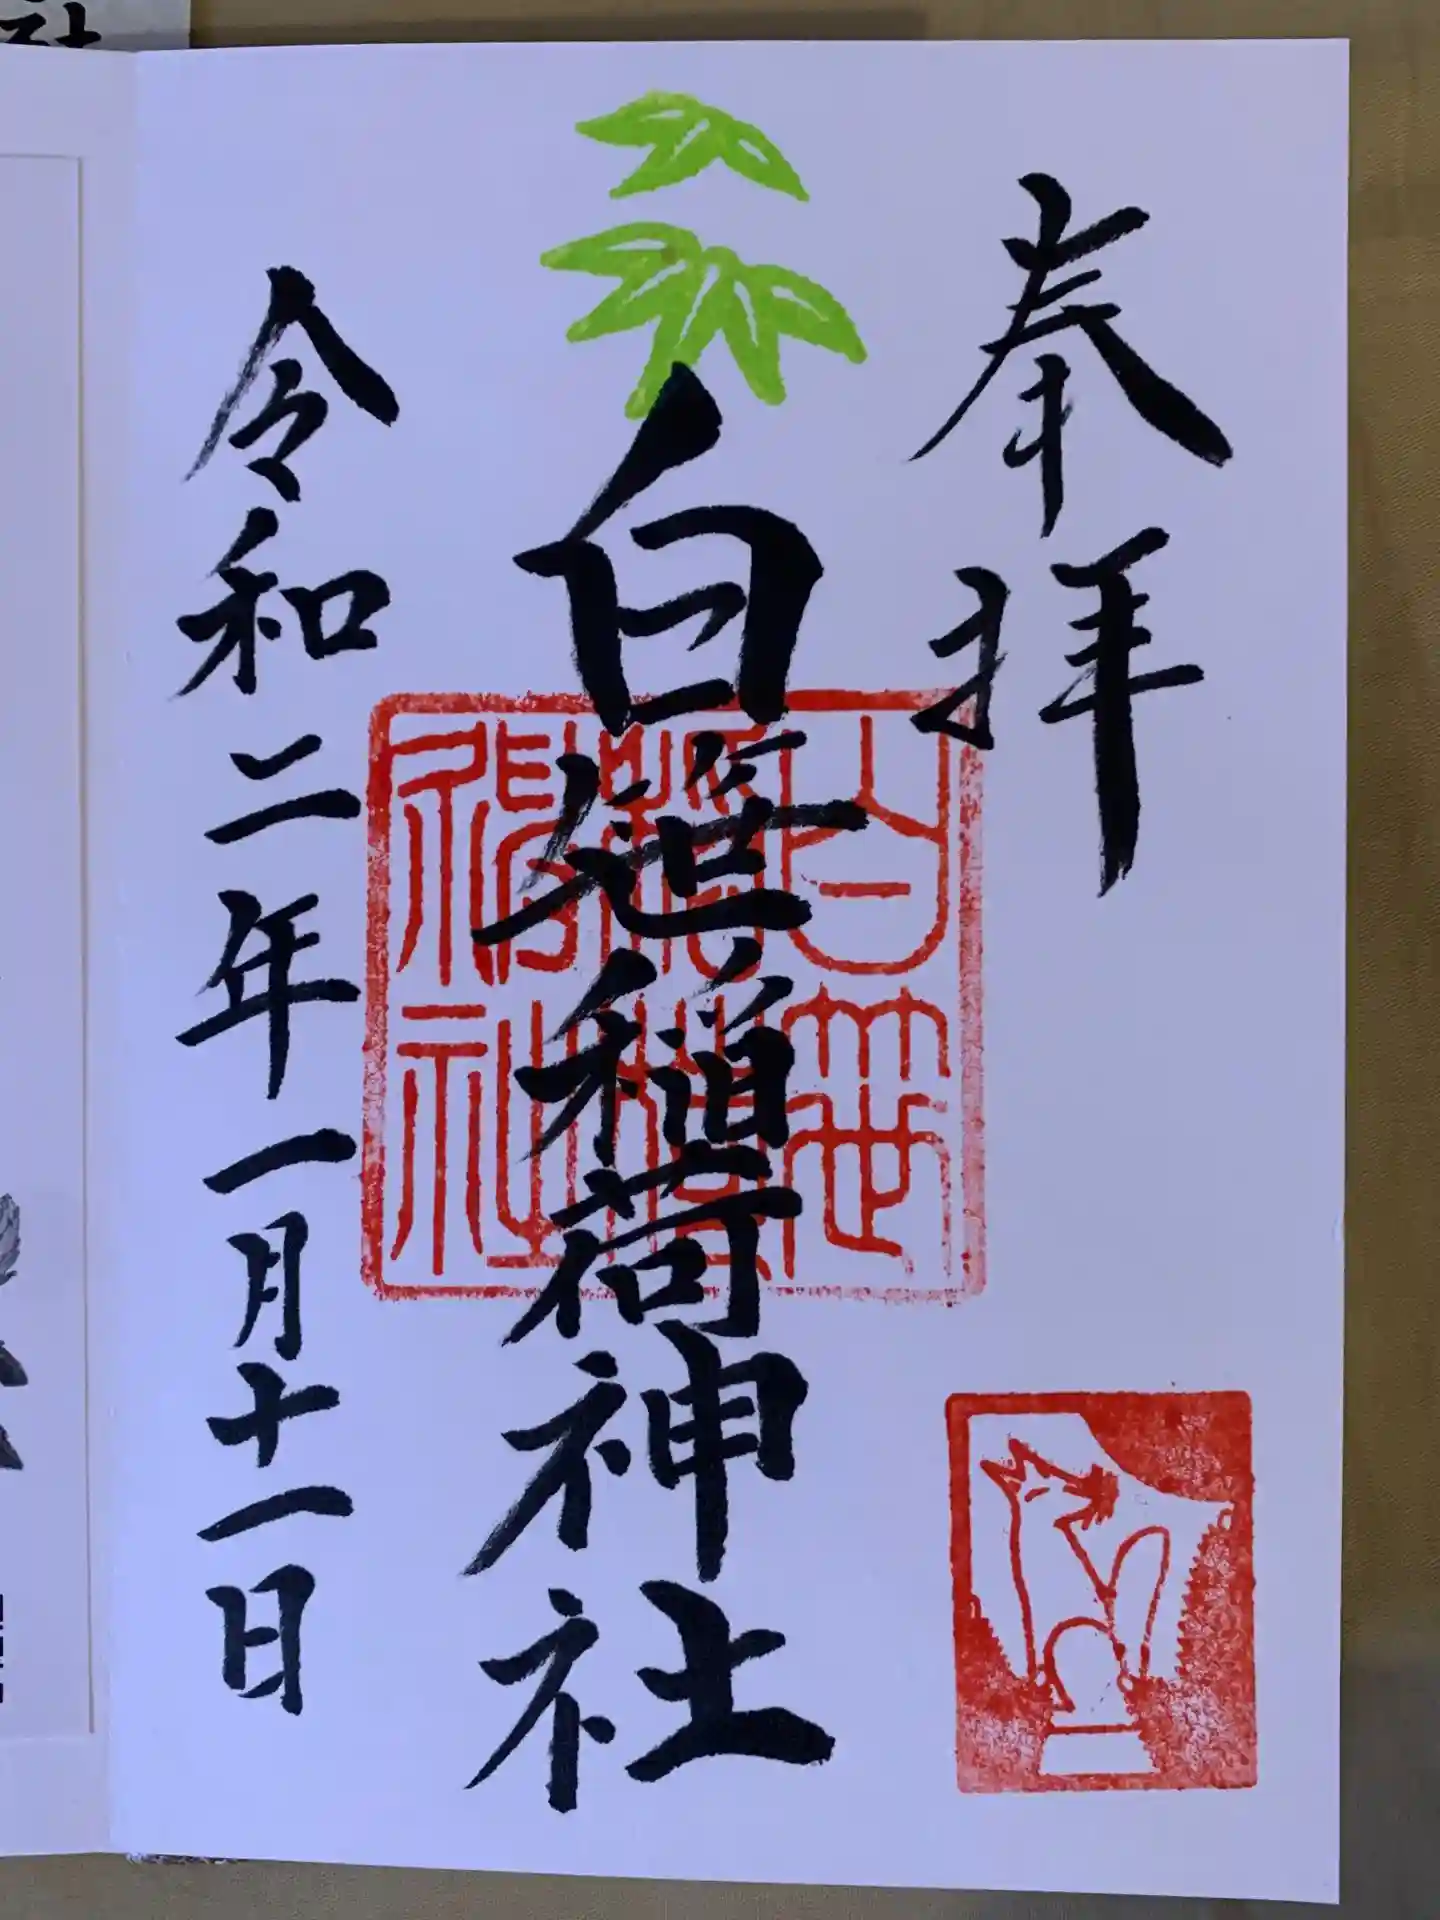 奉拝
白笹稲荷神社
白笹稲荷神社
令和二年一月十一日
社